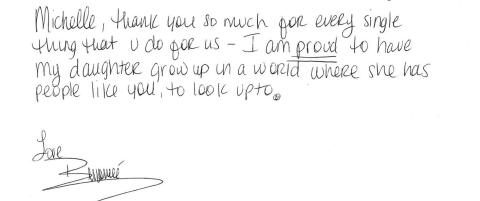 Michelle, thank you so much for every single
thing that u do for us - I am proud to have
my daughter grow up in a world where she has
people like you, to look up to.
Love
Beyoncé